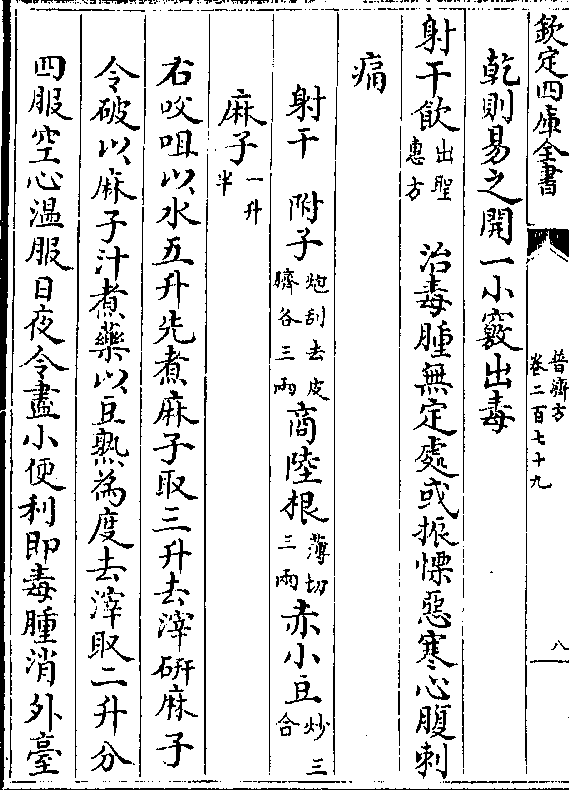 欽定四庫全書
普濟方
卷二百七十九
八
乾則易之開一小竅出毒
射干飲出聖惠方 治毒腫無定處或振慄惡寒心腹刺
痛
射干 附子炮刮去皮臍各三兩 商陸根薄切三兩 赤小豆炒三合
麻子一升半
右㕮咀以水五升先煮麻子取三升去滓研麻子
令破以麻子汁煮藥以豆熟為度去滓取二升分
四服空心溫服日夜令盡小便利即毒腫消外臺